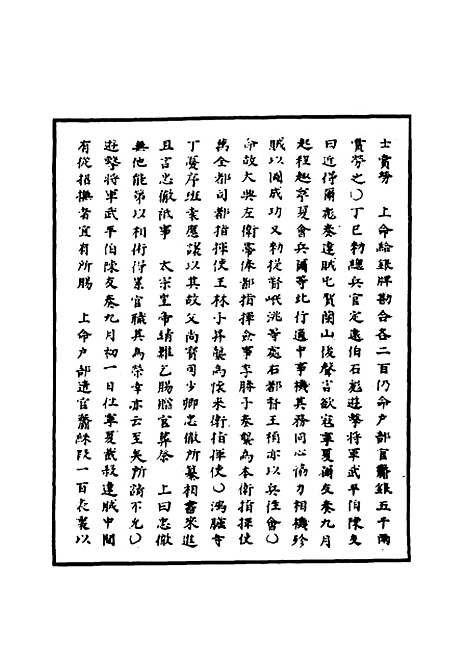 士賞勞　上命給銀牌勘合各二百仍命户部官齎銀五千兩
賞勞之○丁巳勑總兵官定遠伯石彪遊擊將軍武平伯陳友
曰近得爾彪奏達賊屯賀蘭山後聲言欲寇寧夏爾友奏九月
起程趍寧夏會兵爾等此行適中事機其務同心協力相機殄
賊以圖成功又勑從督洮等處右都督王禎亦以兵往會○
命故大興左衛帶俸都指揮僉事李勝子泰襲為本衛指揮使
萬全都司都指揮使王林子昇襲為懷來衛指揮使○鴻臚寺
丁憂序班袁應謨以其故父尚寶司少卿忠徹所纂相書來進
且言忠徹祇事　太宗皇帝靖難乞賜膓官葬祭　上曰忠徹
無他能第以相術得累官職其為榮幸亦云至矣所請不允○
遊擊將軍武平伯陳友奏九月初一日往寧夏截殺達賊中間
有從招撫者宜有所賜　上命户部遣官齎綵段一百表裏以